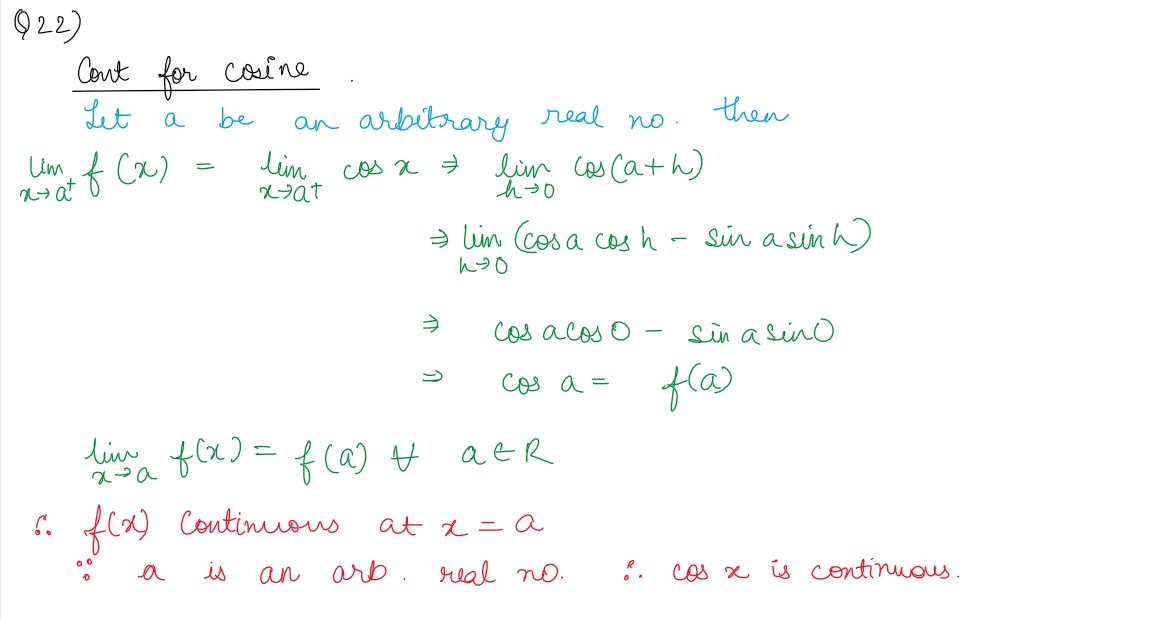 Q22)
Cont for cosine.
Let a be an arbitrary real no. then
lim x→a⁺ f(x) = lim x→a⁺ cos x ⇒ lim h→0 cos(a+h)
⇒ lim h→0 (cos a cos h - sin a sin h)
⇒ cos a cos 0 - sin a sin 0
⇒ cos a = f(a)
lim x→a f(x) = f(a) ∀ a ∈ R
∴ f(x) continuous at x = a
∵ a is an arb. real no. ∴ cos x is continuous.